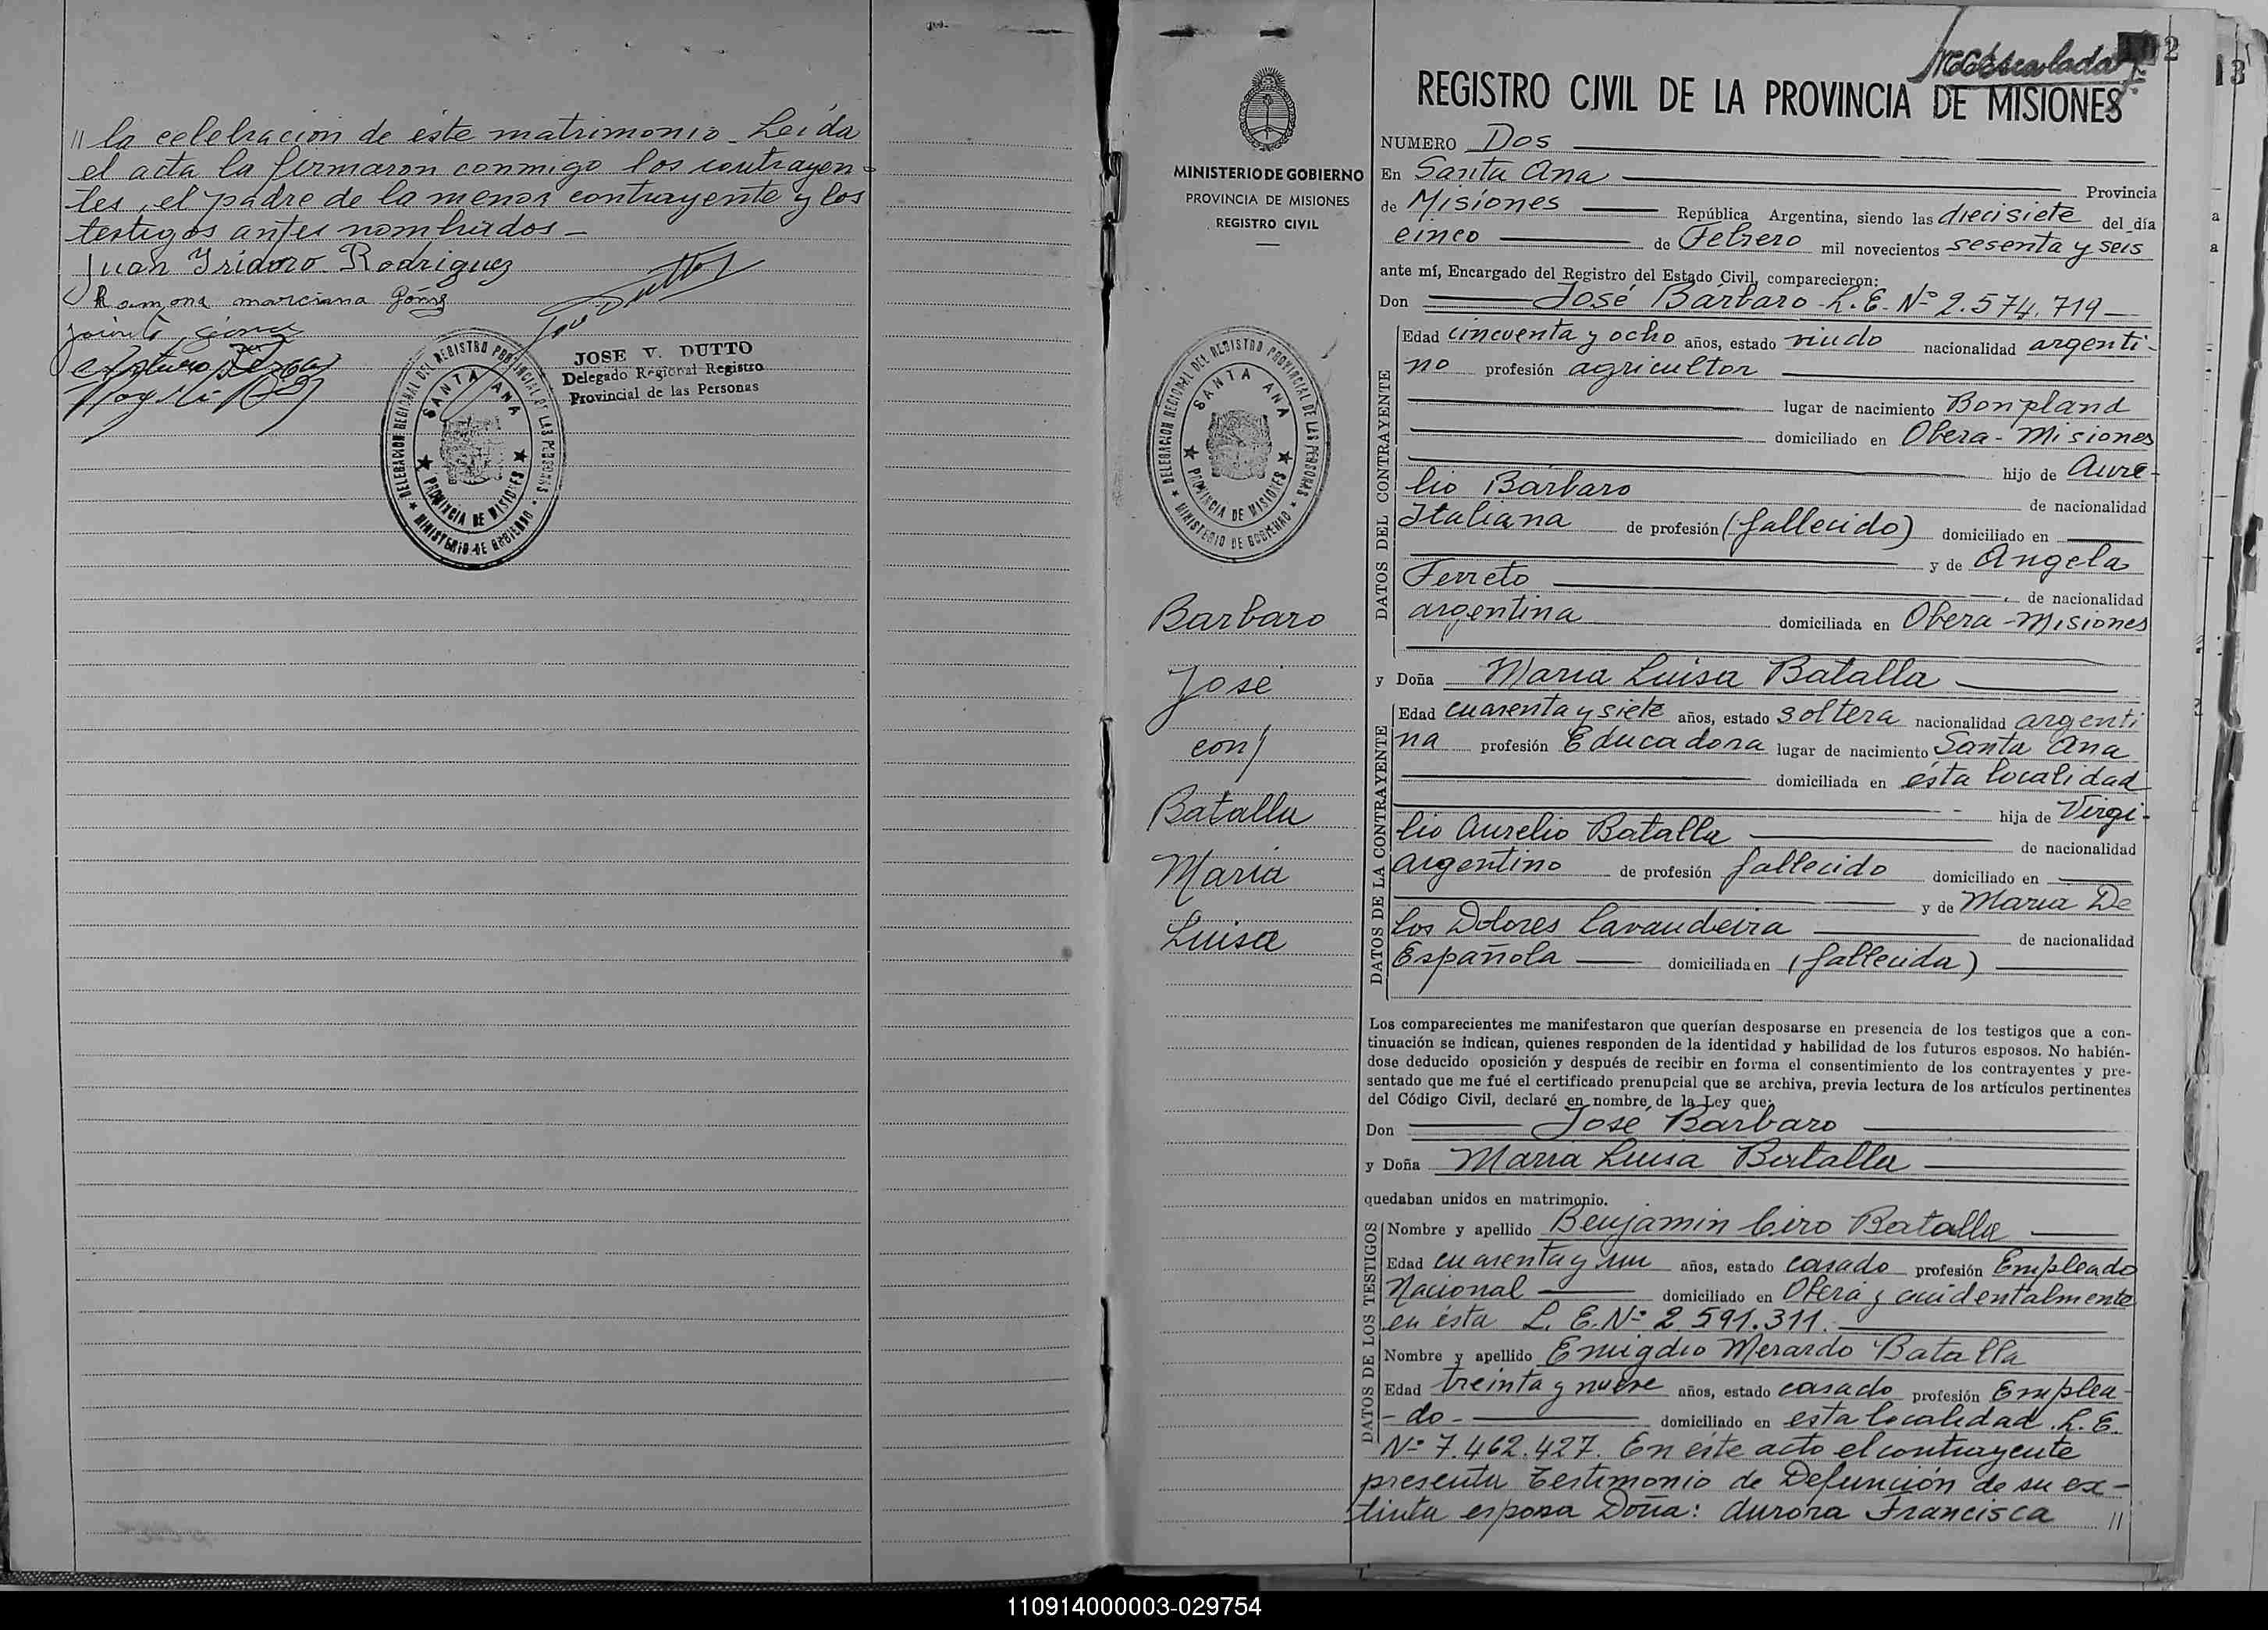 // la celebración de éste matrimonio - Leída
el acta la firmaron conmigo los contrayen-
tes, el padre de la menor contrayente y los
testigos antes nombrados -
Juan Isidoro Rodriguez
Ramona marciana Gómez
JOSE V. DUTTO
Delegado Regional Registro
Provincial de las Personas
DELEGACION REGIONAL DEL REGISTRO PROVINCIAL DE LAS PERSONAS
SANTA ANA
PROVINCIA DE MISIONES
MINISTERIO DE GOBIERNO
MINISTERIO DE GOBIERNO
PROVINCIA DE MISIONES
REGISTRO CIVIL
DELEGACION REGIONAL DEL REGISTRO PROVINCIAL DE LAS PERSONAS
SANTA ANA
PROVINCIA DE MISIONES
MINISTERIO DE GOBIERNO
Barbaro
José
con/
Batalla
María
Luisa
2
13
REGISTRO CIVIL DE LA PROVINCIA DE MISIONES
NUMERO Dos
En Santa Ana Provincia
de Misiones República Argentina, siendo las diecisiete del día
cinco de Febrero mil novecientos sesenta y seis
ante mí, Encargado del Registro del Estado Civil, comparecieron:
Don José Bárbaro - L.E. Nº 2.574.719
DATOS DEL CONTRAYENTE
Edad cincuenta y ocho años, estado viudo nacionalidad argenti-
no profesión agricultor
lugar de nacimiento Bonpland
domiciliado en Obera - Misiones
hijo de Aure-
lio Barbaro de nacionalidad
Italiana de profesión (fallecido) domiciliado en
y de Angela
Ferreto de nacionalidad
argentina domiciliada en Obera - Misiones
y Doña María Luisa Batalla
DATOS DE LA CONTRAYENTE
Edad cuarenta y siete años, estado soltera nacionalidad argenti
na profesión Educadora lugar de nacimiento Santa Ana
domiciliada en ésta localidad
hija de Virgi-
lio Aurelio Batalla de nacionalidad
argentino de profesión fallecido domiciliado en
y de María De
los Dolores Lavandeira de nacionalidad
Española domiciliada en (fallecida)
Los comparecientes me manifestaron que querían desposarse en presencia de los testigos que a con-
tinuación se indican, quienes responden de la identidad y habilidad de los futuros esposos. No habién-
dose deducido oposición y después de recibir en forma el consentimiento de los contrayentes y pre-
sentado que me fué el certificado prenupcial que se archiva, previa lectura de los artículos pertinentes
del Código Civil, declaré en nombre de la Ley que:
Don José Barbaro
y Doña María Luisa Batalla
quedaban unidos en matrimonio.
DATOS DE LOS TESTIGOS
Nombre y apellido Benjamin Ciro Batalla
Edad cuarenta y un años, estado casado profesión Empleado
Nacional domiciliado en Oberá y accidentalmente
en ésta L. E. Nº 2.591.311.
Nombre y apellido Emigdio Merardo Batalla
Edad treinta y nueve años, estado casado profesión Emplea-
-do- domiciliado en esta localidad. L. E.
Nº 7.462.427. En éste acto el contrayente
presenta testimonio de Defunción de su ex-
tinta esposa Doña: Aurora Francisca //
110914000003-029754